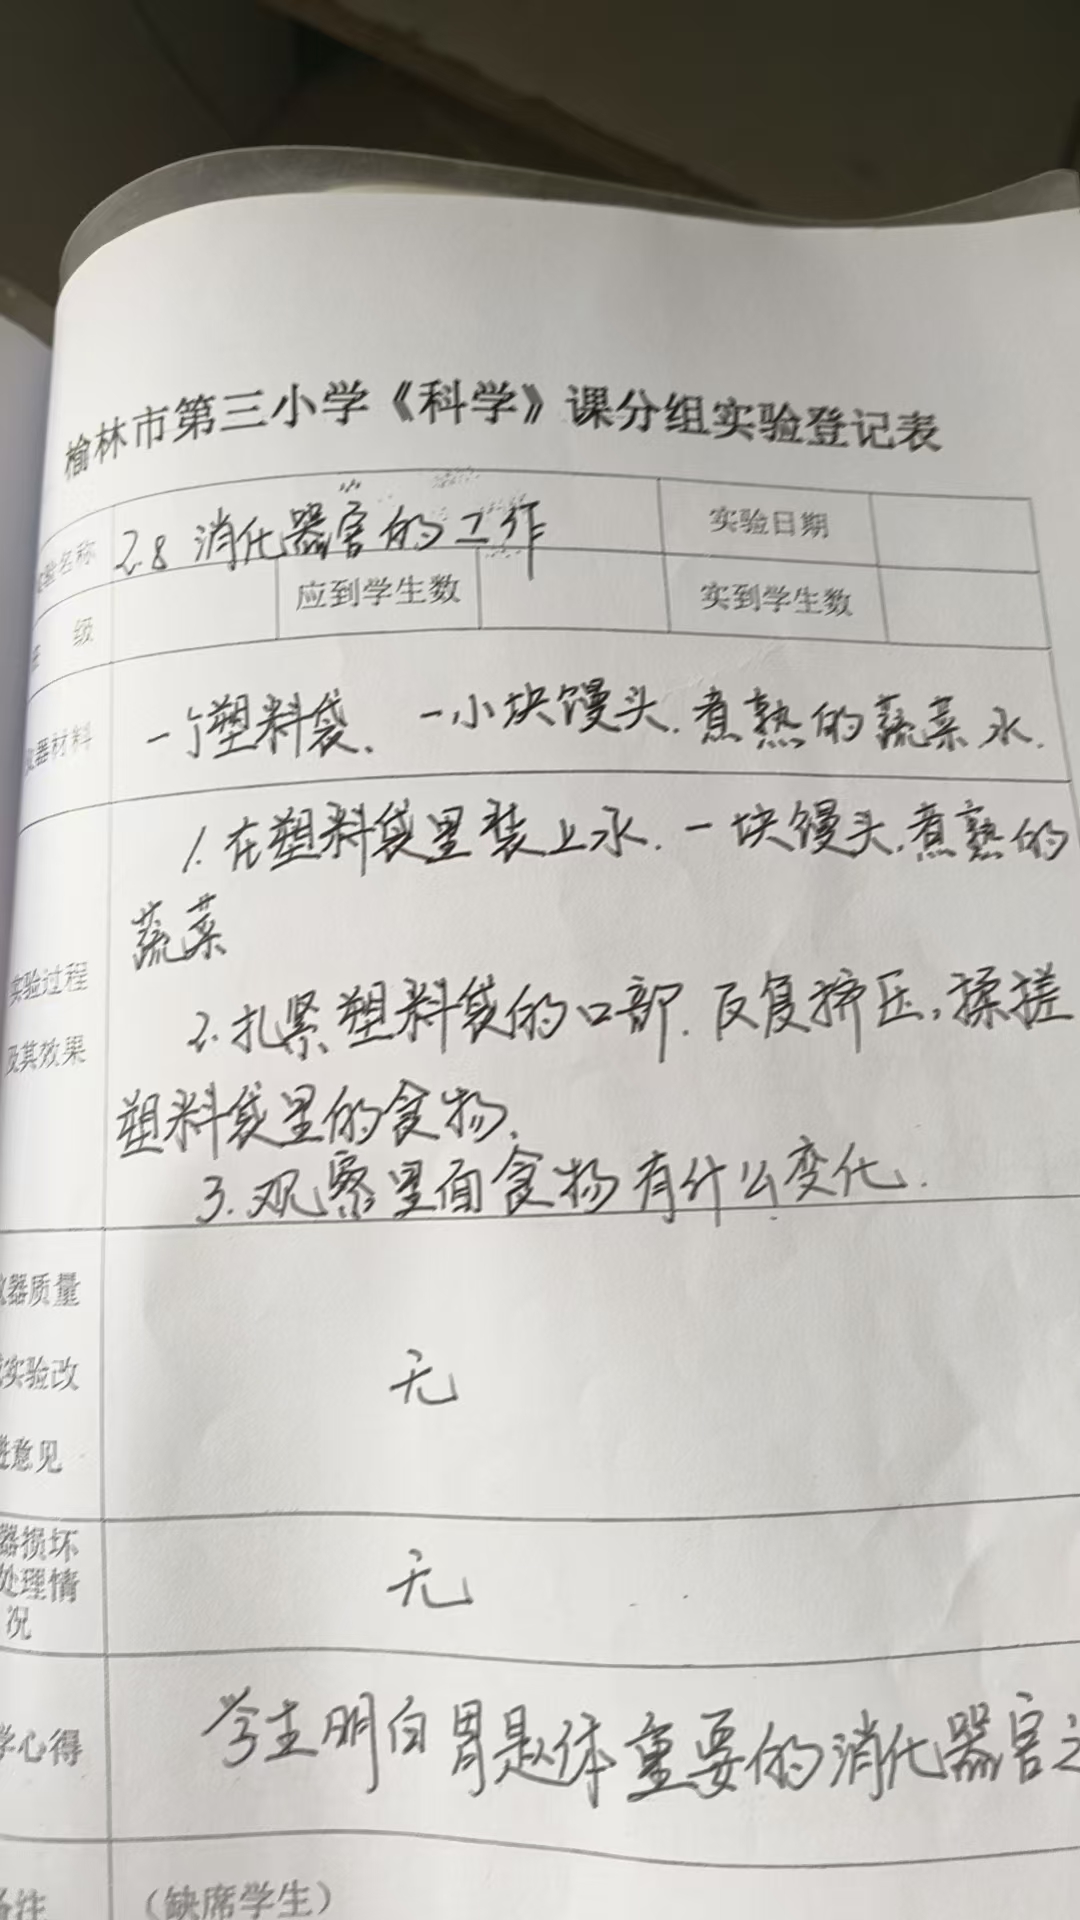 榆林市第三小学《科学》课分组实验登记表
验名称 2.8 消化器官的工作 实验日期
级 应到学生数 实到学生数
器材料 一个塑料袋、一小块馒头、煮熟的蔬菜 水.
1. 在塑料袋里装上水、一块馒头、煮熟的
蔬菜
实验过程
及其效果
2. 扎紧塑料袋的口部、反复挤压，揉搓
塑料袋里的食物、
3. 观察里面食物有什么变化.
器质量
实验改
意见
无
器损坏
处理情
况
无
学心得 学生明白胃是人体重要的消化器官之
备注 （缺席学生）